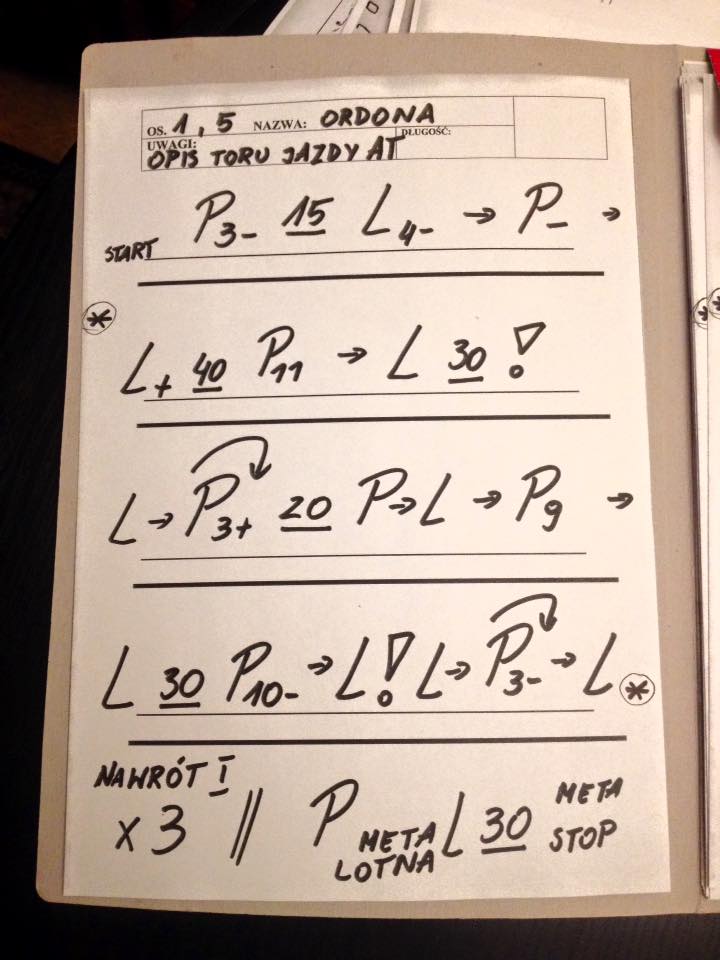 OS. 1, 5 NAZWA: ORDONA
UWAGI: DŁUGOŚĆ:
OPIS TORU JAZDY AT
START P3- 15 L4- → P- →
L+ 40 P11 → L 30 !
L → P3+ 20 P → L → P9 →
L 30 P10- → L! L → P3- → L *
NAWRÓT I
x 3 // P META LOTNA L 30 META STOP